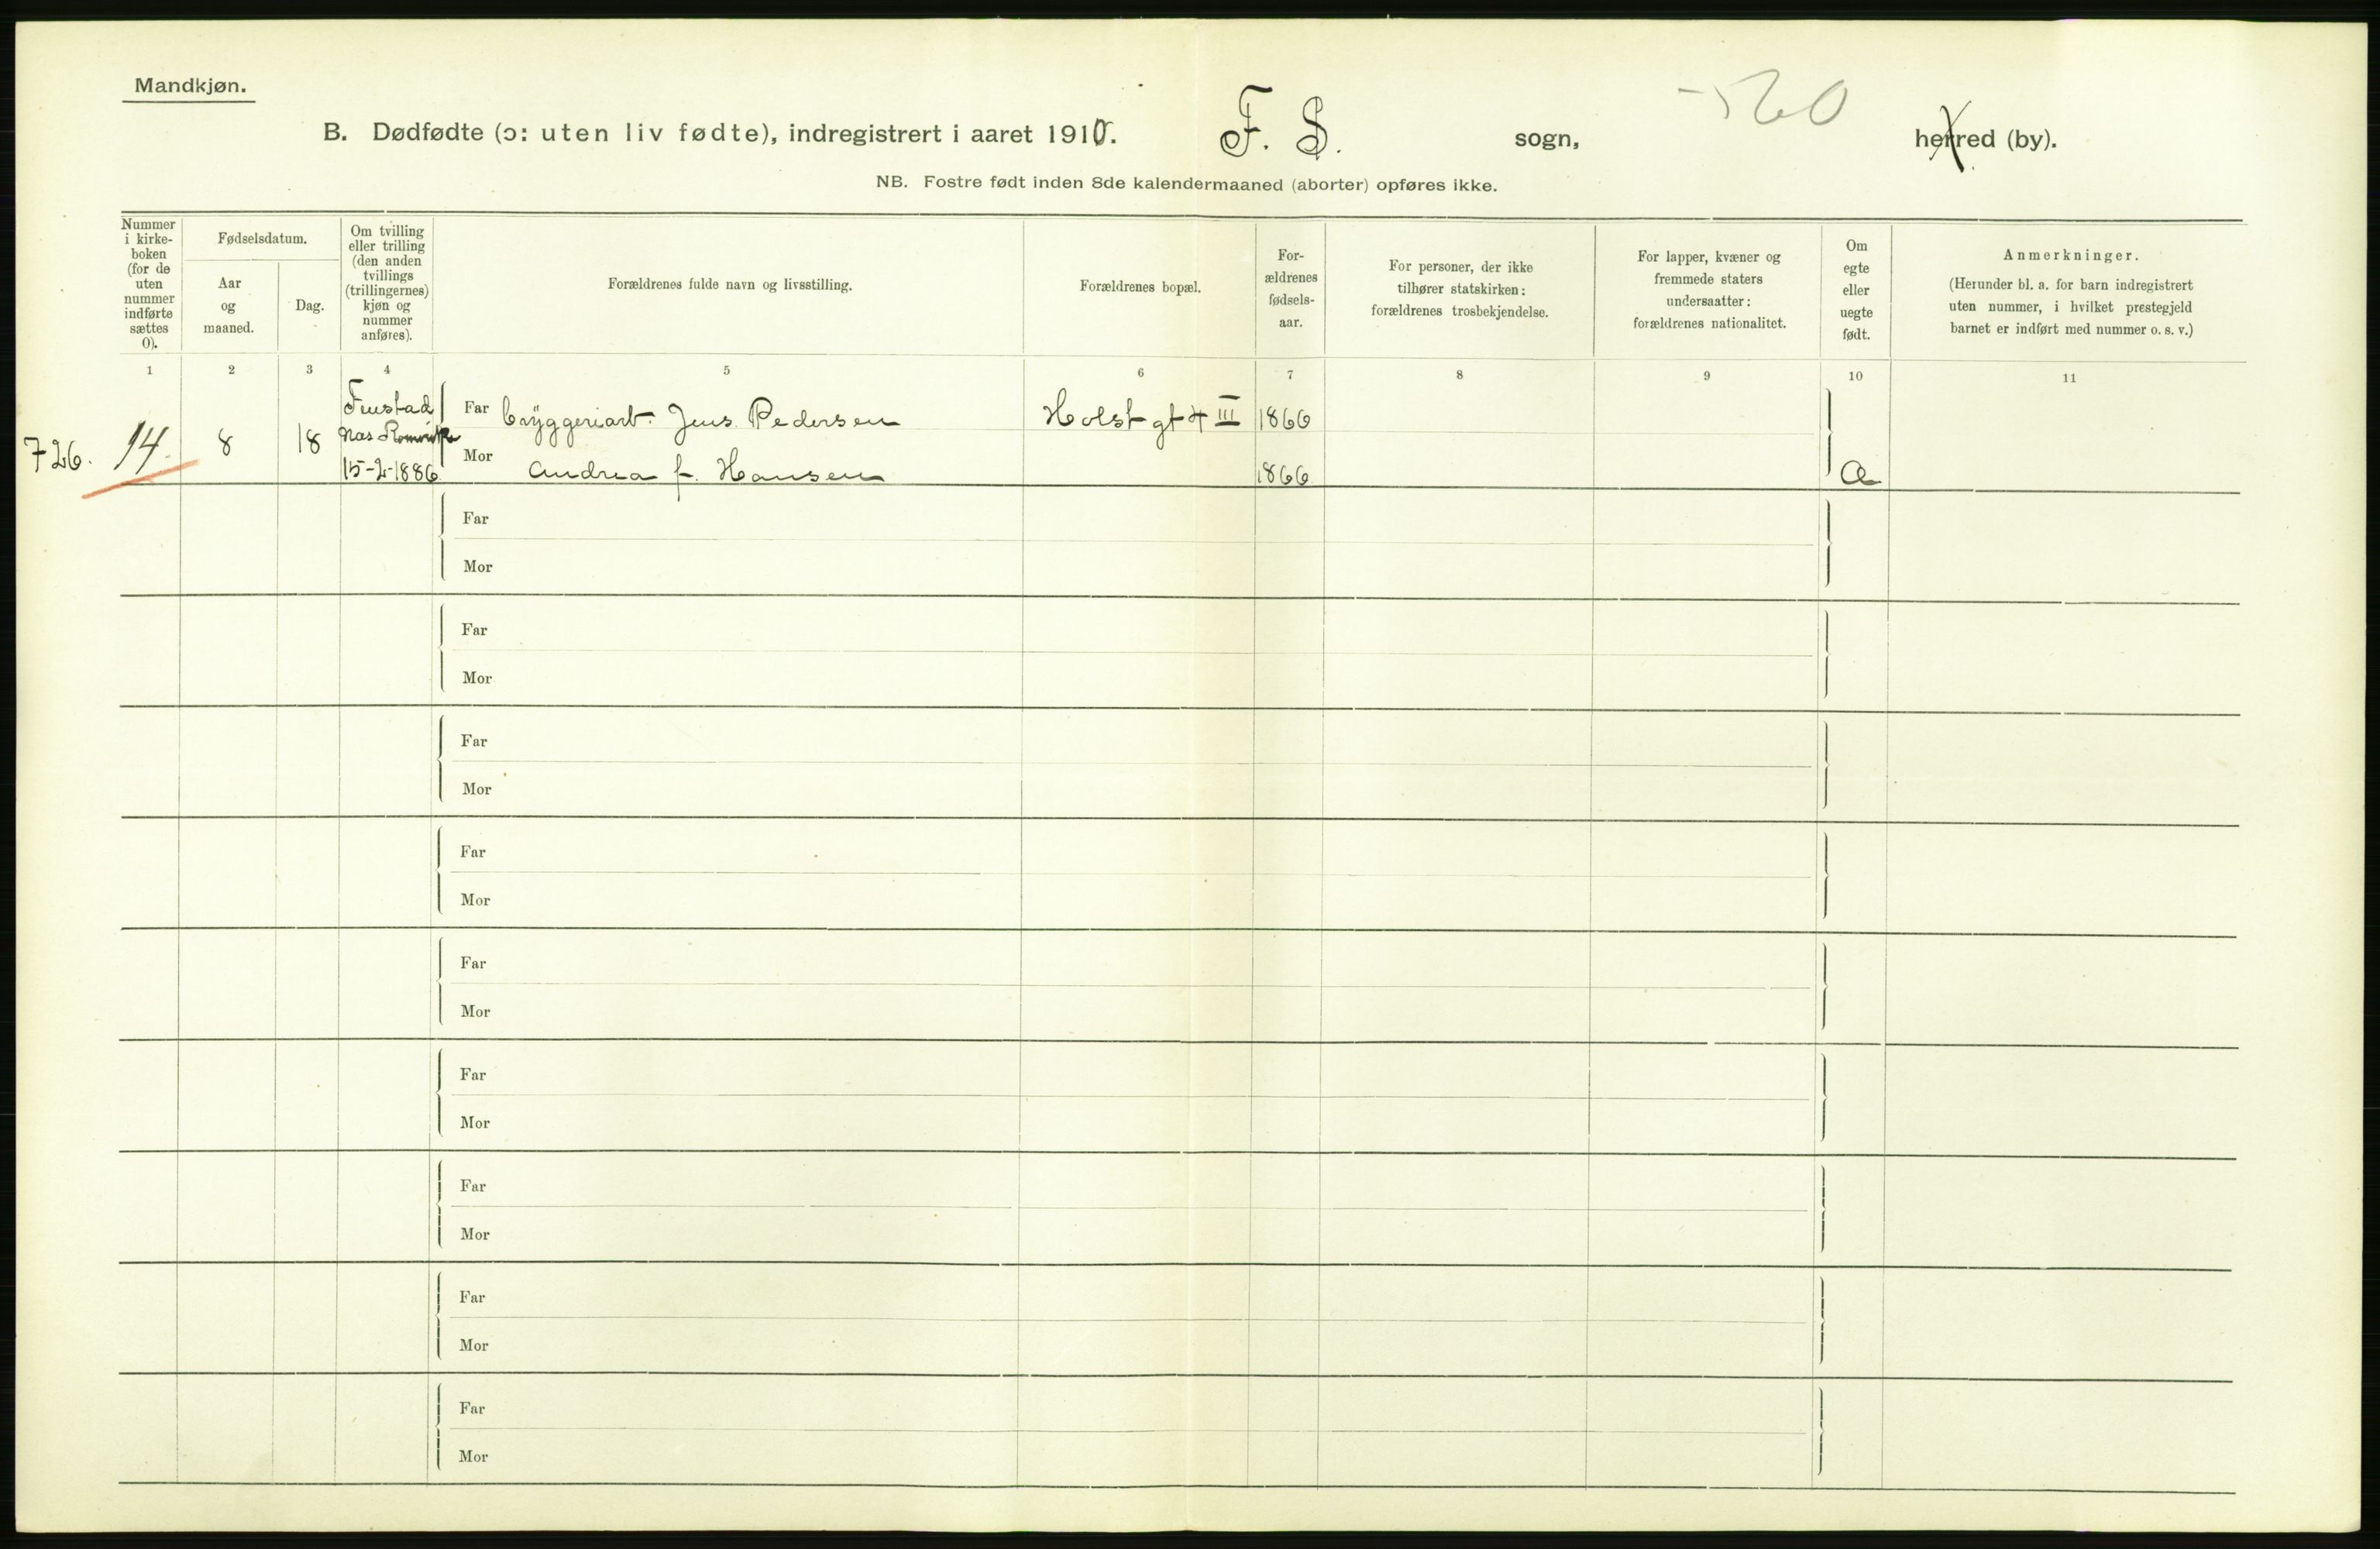 Mandkjøn.
B. Dødfødte (ɔ: uten liv fødte), indregistrert i aaret 1910. F. S. sogn, herred (by).
NB. Fostre født inden 8de kalendermaaned (aborter) opføres ikke.
Nummer
i kirke-
boken
(for de
uten
nummer
indførte
sættes
0).
Fødselsdatum.
Aar
og
maaned.
Dag.
Om tvilling
eller trilling
(den anden
tvillings
(trillingernes)
kjøn og
nummer
anføres).
Forældrenes fulde navn og livsstilling.
Forældrenes bopæl.
For-
ældrenes
fødsels-
aar.
For personer, der ikke
tilhører statskirken:
forældrenes trosbekjendelse.
For lapper, kvæner og
fremmede staters
undersaatter:
forældrenes nationalitet.
Om
egte
eller
uegte
født.
Anmerkninger.
(Herunder bl. a. for barn indregistrert
uten nummer, i hvilket prestegjeld
barnet er indført med nummer o. s. v.)
1 2 3 4 5 6 7 8 9 10 11
726. 14. 8 18
Nas Romerike
15-2-1886
Far bryggeriarb. Jens Pedersen Holst gt 4 III 1866
Mor Andrea f. Hansen 1866 Æ
Far
Mor
Far
Mor
Far
Mor
Far
Mor
Far
Mor
Far
Mor
Far
Mor
Far
Mor
Far
Mor